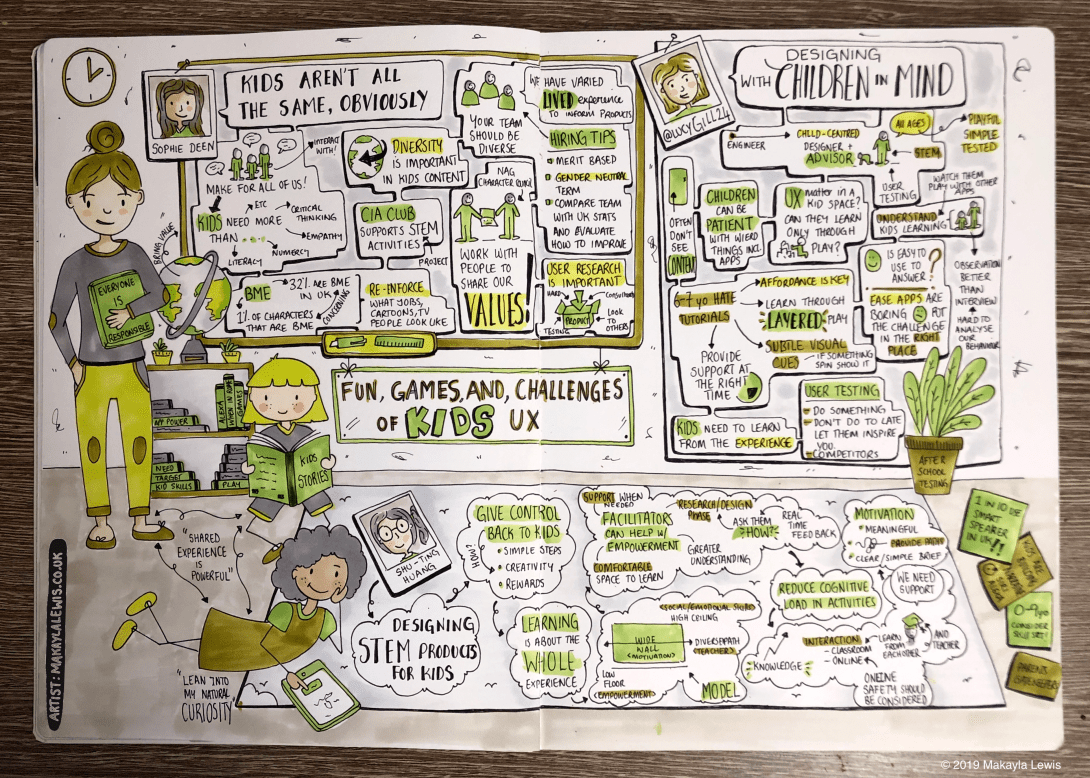 KIDS AREN'T ALL
THE SAME, OBVIOUSLY
SOPHIE DEEN
INTERACT
WITH!
MAKE FOR ALL OF US!
KIDS NEED MORE
THAN
ETC
CRITICAL
THINKING
EMPATHY
NUMERCY
LITERACY
BRING VALUE
DIVERSITY
IS IMPORTANT
IN KIDS CONTENT
CIA CLUB
SUPPORTS STEM
ACTIVITIES
PROJECT
BME
32% ARE BME
IN UK
1% OF CHARACTERS
THAT ARE BME
CONCERNING
RE-INFORCE
WHAT JOBS,
CARTOONS, TV
PEOPLE LOOK LIKE
YOUR TEAM
SHOULD BE
DIVERSE
NAG
CHARACTER
WORK WITH
PEOPLE TO
SHARE OUR
VALUES!
WE HAVE VARIED
LIVED experience
TO INFORM PRODUCTS
HIRING TIPS
MERIT BASED
GENDER NEUTRAL
TERM
COMPARE TEAM
WITH UK STATS
AND EVALUATE
HOW TO IMPROVE
USER RESEARCH
IS IMPORTANT
HARD
PRODUCT
TESTING
LOOK
TO
OTHERS
EVERYONE
IS
RESPONSIBLE
APP POWER
ALEXA
GAMES
NEED
TARGET
KID SKILLS
PLAY
KIDS
STORIES
FUN, GAMES, AND, CHALLENGES
OF KIDS UX
DESIGNING
WITH CHILDREN IN MIND
@LUCYGILL24
ENGINEER
CHILD-CENTRED
DESIGNER +
ADVISOR
ALL AGES
PLAYFUL
SIMPLE
TESTED
STEM
USER
TESTING
WATCH THEM
PLAY WITH OTHER
APPS
OFTEN
DON'T
SEE
CONTENT
CHILDREN
CAN BE
PATIENT
WITH WIERD
THINGS INCL.
APPS
UX matter in a
KID SPACE?
CAN THEY LEARN
ONLY THROUGH
PLAY?
UNDERSTAND
KIDS LEARNING
OBSERVATION
BETTER
THAN
INTERVIEW
HARD TO
ANALYSE
OUR
BEHAVIOUR
IS EASY TO
USE TO
ANSWER ?
EASE APPS ARE
BORING PUT
THE CHALLENGE
IN THE RIGHT
PLACE
6-7 yo HATE
TUTORIALS
AFFORDANCE IS KEY
LEARN THROUGH
LAYERED PLAY
SUBTLE VISUAL
CUES
IF SOMETHING
SPIN SHOW IT
PROVIDE
SUPPORT AT
THE RIGHT
TIME
KIDS NEED TO LEARN
FROM THE EXPERIENCE
USER TESTING
DO SOMETHING
DON'T DO TO LATE
LET THEM INSPIRE
YOU
COMPETITORS
AFTER
SCHOOL
TESTING
"SHARED
EXPERIENCE
IS
POWERFUL"
"LEAN INTO
MY NATURAL
CURIOSITY
ARTIST: MAKAYLALEWIS.CO.UK
SHU-TING
HUANG
DESIGNING
STEM PRODUCTS
FOR KIDS
HOW?
GIVE CONTROL
BACK TO KIDS
SIMPLE STEPS
CREATIVITY
REWARDS
LEARNING
IS ABOUT THE
WHOLE
EXPERIENCE
SUPPORT WHEN
NEEDED
FACILITATORS
CAN HELP W/
EMPOWERMENT
COMFORTABLE
SPACE TO LEARN
RESEARCH/DESIGN
PHASE
ASK THEM
"HOW?"
REAL
TIME
FEEDBACK
GREATER
UNDERSTANDING
SOCIAL/EMOTIONAL
HIGH CEILING
WIDE
WALL
(MOTIVATION)
DIVERSEPATH
(TEACHER)
LOW
FLOOR
EMPOWERMENT
MODEL
MOTIVATION
MEANINGFUL
PROVIDE PATH
CLEAR/SIMPLE BRIEF
REDUCE COGNITIVE
LOAD IN ACTIVITIES
WE NEED
SUPPORT
INTERACTION
CLASSROOM
ONLINE
KNOWLEDGE
LEARN
FROM
EACHOTHER
AND
TEACHER
ONLINE
SAFETY SHOULD
BE CONSIDERED
1 IN 10 USE
SMART
SPEAKER
IN UK!!
CONSIDER
SKILL SET!
PARENTS
GATEKEEPER
© 2019 Makayla Lewis